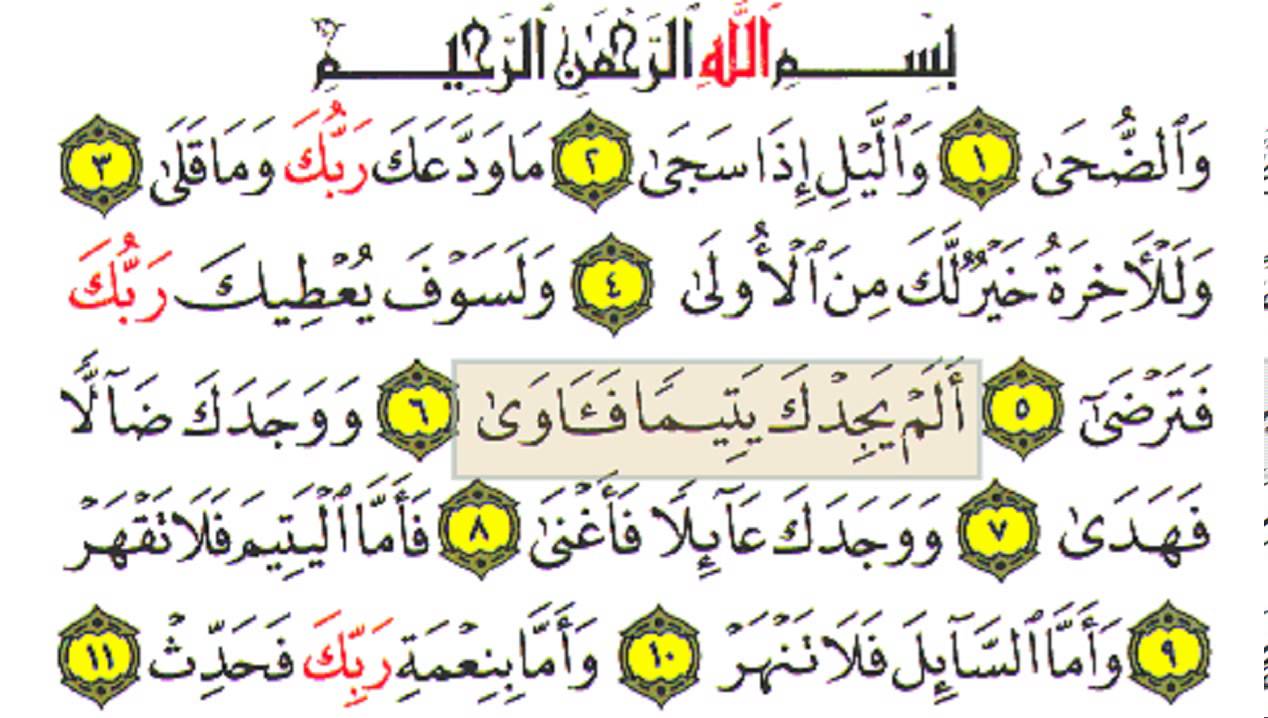 بِسْمِ ٱللَّهِ ٱلرَّحْمَٰنِ ٱلرَّحِيمِ
وَٱلضُّحَىٰ ١ وَٱلَّيْلِ إِذَا سَجَىٰ ٢ مَا وَدَّعَكَ رَبُّكَ وَمَا قَلَىٰ ٣
وَلَلْأَخِرَةُ خَيْرٌ لَّكَ مِنَ ٱلْأُولَىٰ ٤ وَلَسَوْفَ يُعْطِيكَ رَبُّكَ
فَتَرْضَىٰٓ ٥ أَلَمْ يَجِدْكَ يَتِيمًا فَـَٔاوَىٰ ٦ وَوَجَدَكَ ضَآلًّا
فَهَدَىٰ ٧ وَوَجَدَكَ عَآئِلًا فَأَغْنَىٰ ٨ فَأَمَّا ٱلْيَتِيمَ فَلَا تَقْهَرْ
٩ وَأَمَّا ٱلسَّآئِلَ فَلَا تَنْهَرْ ١٠ وَأَمَّا بِنِعْمَةِ رَبِّكَ فَحَدِّثْ ١١